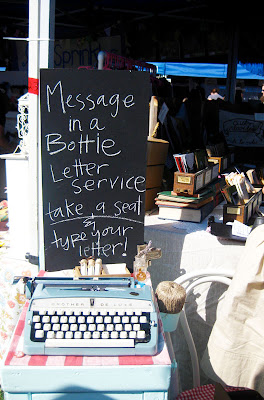 Message
in a
Bottle
Letter
service
take a seat
&
type your
letter!
BROTHER DE LUXE